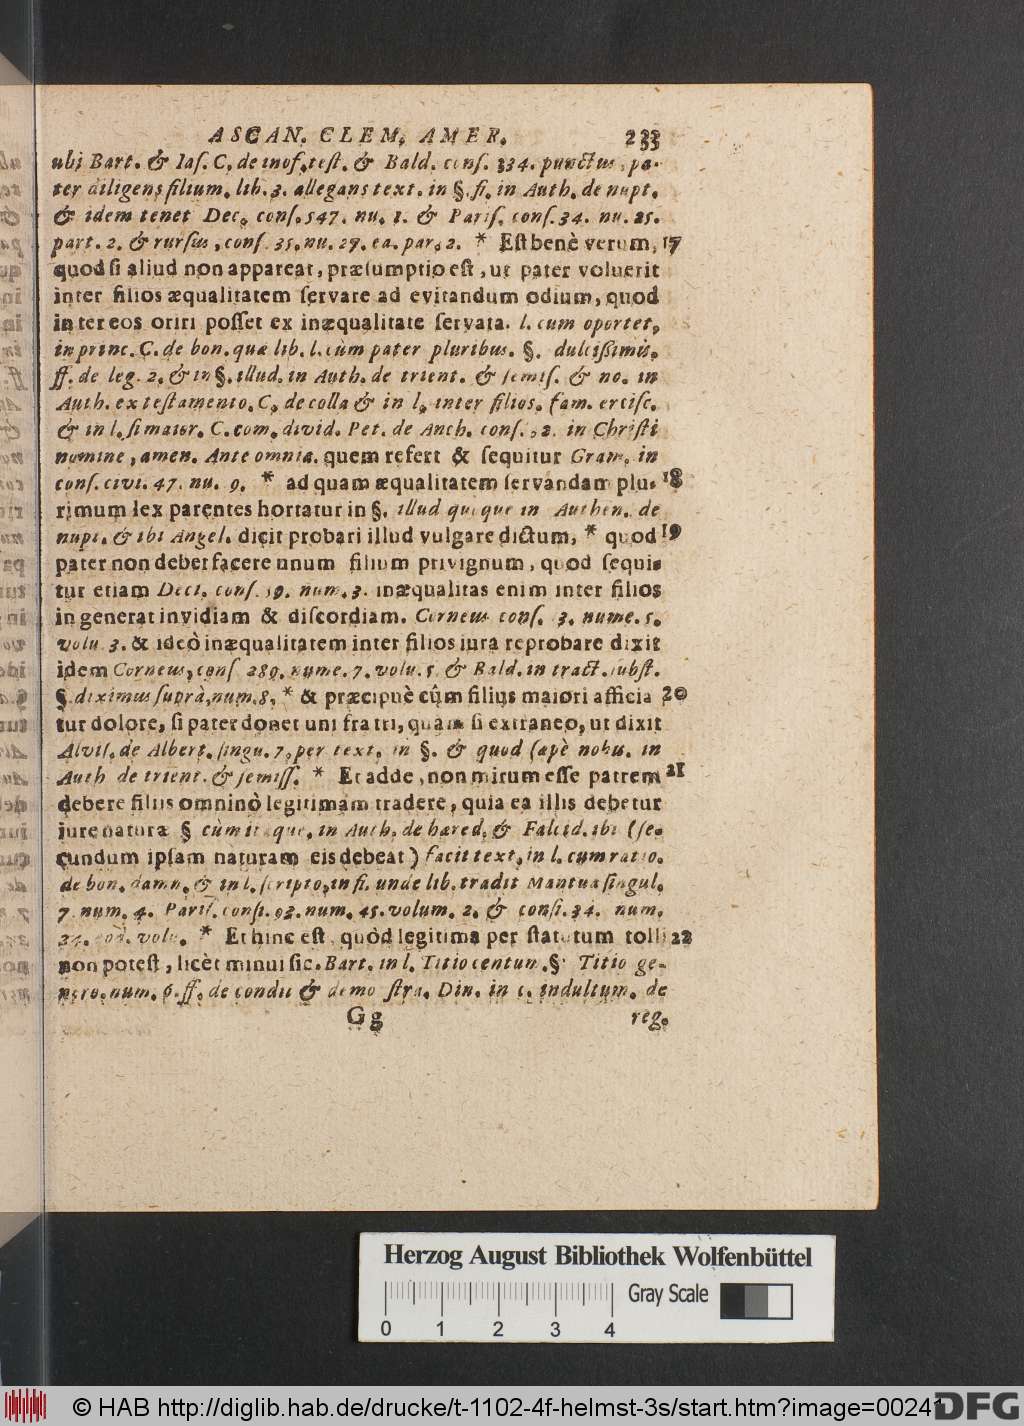 ASCAN. CLEM. AMER. 233
ubi Bart. & Iaſ. C. de inof. teſt. & Bald. conſ. 334. punctus, pa-
ter diligens filium. lib. 3. allegans text. in §. fi. in Auth. de nupt.
& idem tenet Dec. conſ. 547. nu. 1. & Pariſ. conſ. 34. nu. 25.
part. 2. & rurſus, conſ. 35. nu. 27. ea. par. 2. * Eſt benè verum, 17
quod ſi aliud non appareat, præſumptio eſt, ut pater voluerit
inter filios æqualitatem ſervare ad evitandum odium, quod
inter eos oriri poſſet ex inæqualitate ſervata. l. cum oportet,
in princ. C. de bon. quæ lib. l. cùm pater pluribus. §. dulcißimis,
ff. de leg. 2. & in §. illud. in Auth. de trient. & ſemiſ. & no. in
Auth. ex teſtamento. C. de colla & in l. inter filios. fam. erciſc.
& in l. ſi maior. C. com. divid. Pet. de Anch. conſ. 2. in Chriſti
nomine, amen. Ante omnia. quem refert & ſequitur Gram. in
conſ. civi. 47. nu. 9. * ad quam æqualitatem ſervandam plu- 18
rimum lex parentes hortatur in §. illud quoque in Authen. de
nupt. & ibi Angel. dicit probari illud vulgare dictum, * quod 19
pater non debet facere unum filium privignum, quod ſequi-
tur etiam Deci. conſ. 19. num. 3. inæqualitas enim inter filios
ingenerat invidiam & diſcordiam. Corneus conſ. 3. nume. 5.
volu. 3. & ideò inæqualitatem inter filios iura reprobare dixit
idem Corneus, conſ 289. nume. 7. volu. 5. & Bald. in tract. ſubſt.
§. diximus ſuprà, num. 8. * & præcipuè cûm filius maiori afficia 20
tur dolore, ſi pater donet uni fratri, quàm ſi extraneo, ut dixit
Alviſ. de Albert. ſingu. 7. per text. in §. & quod ſæpè nobu. in
Auth de trient. & ſemiſſ. * Et adde, non mirum eſſe patrem 21
debere filiis omninò legitimam tradere, quia ea illis debetur
iure naturæ § cùm itaque, in Auth. de hæred. & Falcid. ibi (ſe-
cundum ipſam naturam eis debeat) facit text. in l. cum ratio.
de bon. damn. & in l. ſcripto, in fi. unde lib. tradit Mantua ſingul.
7. num. 4. Pariſ. conſi. 92. num. 45. volum. 2. & conſi. 34. num.
24. eod. volu. * Et hinc eſt, quòd legitima per ſtatutum tolli 22
non poteſt, licèt minui ſic. Bart. in l. Titio centum. § Titio ge-
nero. num. 6. ff. de condit & demonſtra. Din. in c. indultum. de
Gg reg.
Herzog August Bibliothek Wolfenbüttel
Gray Scale
0 1 2 3 4
© HAB http://diglib.hab.de/drucke/t-1102-4f-helmst-3s/start.htm?image=00241
DFG